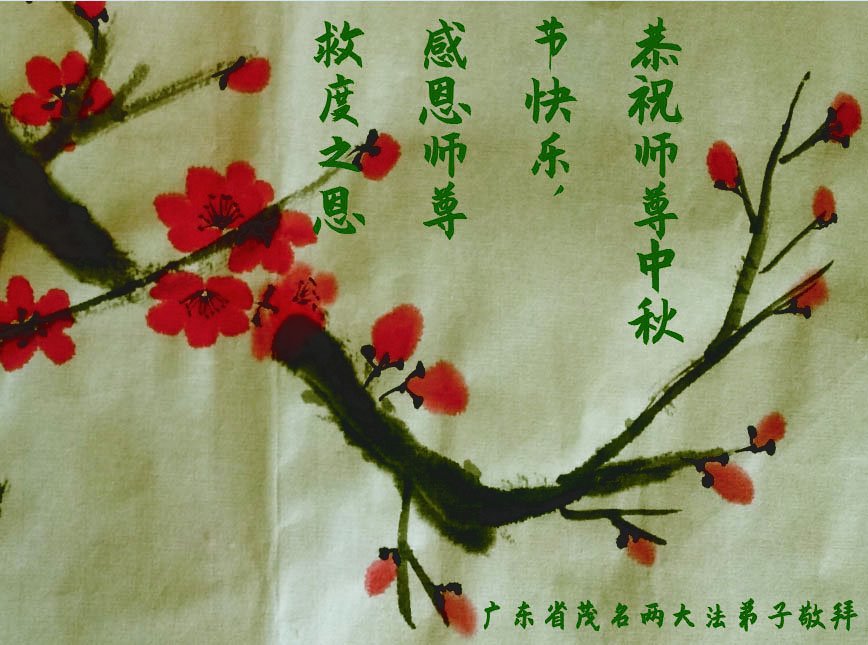 恭祝师尊中秋
节快乐，
感恩师尊
救度之恩
广东省茂名两大法弟子敬拜